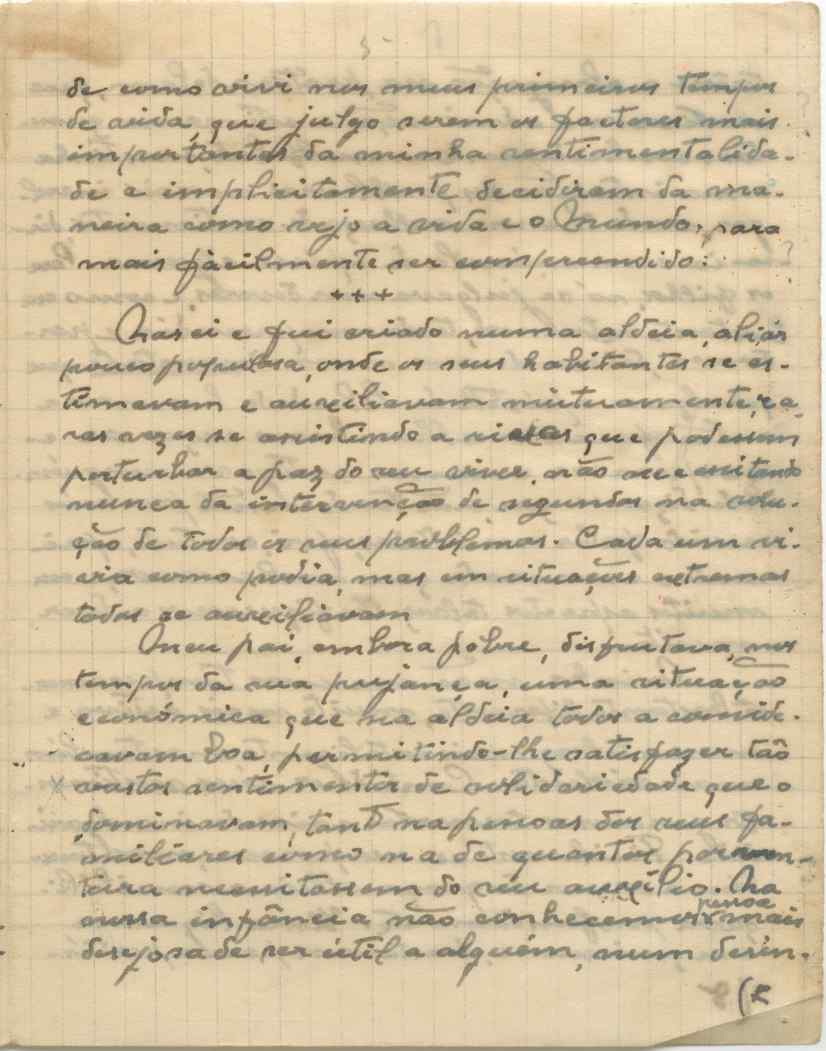 5
de como vivi nos meus primeiros tempos
de vida, que julgo serem os factores mais
importantes da minha sentimentalida-
de e implicitamente decidirem da ma-
neira como vejo a vida e o Mundo, para
mais fàcilmente ser compreendido:
+ + +
Nasci e fui criado numa aldeia, aliás
pouco populosa, onde os seus habitantes se es-
timavam e auxiliavam mùtuamente, ra-
ras vezes se assistindo a rixas que podessem
perturbar a paz do seu viver, não necessitando
nunca da intervenção de segundos na solu-
ção de todos os seus problemas. Cada um vi-
via como podia, mas em situações extremas
todos se auxiliavam
Meu pai, embora pobre, disfrutava, nos
tempos da sua pujança, uma situação
económica que na aldeia todos a conside-
ravam boa, permitindo-lhe satisfazer tão
vastos sentimentos de solidariedade que o
dominavam, tanto na pessoas dos seus fa-
miliares como na de quantos porven-
tura necessitassem do seu auxílio. Na
nossa infância não conhecemos pessoa mais
desejosa de ser útil a alguém, num desin-